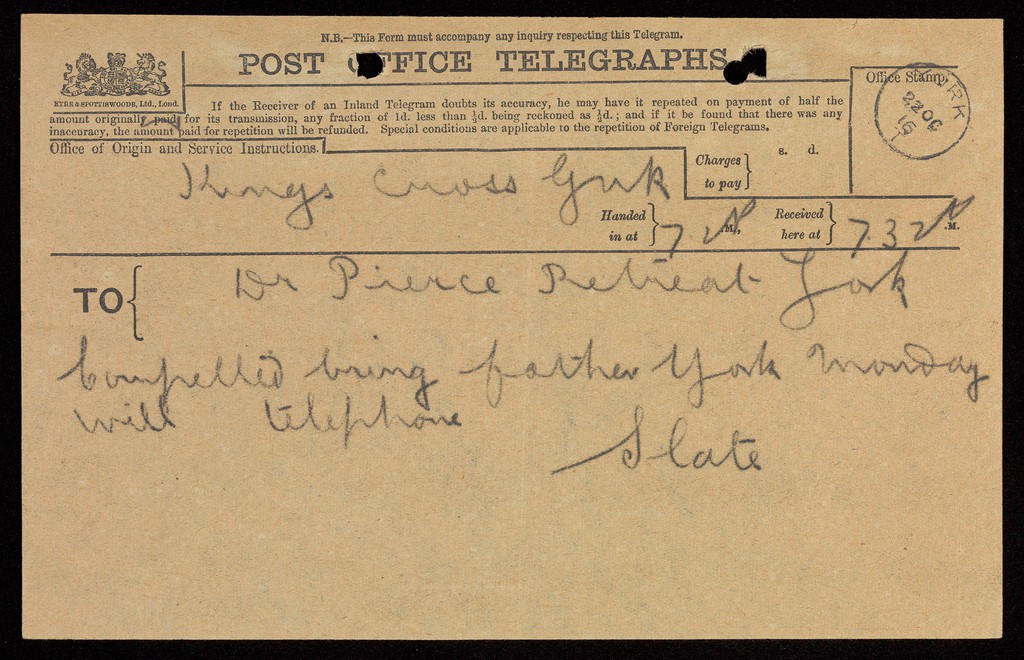 N.B.—This Form must accompany any inquiry respecting this Telegram.
POST OFFICE TELEGRAPHS.
EYRE & SPOTTISWOODE, Ltd., Lond.
If the Receiver of an Inland Telegram doubts its accuracy, he may have it repeated on payment of half the
amount originally paid for its transmission, any fraction of 1d. less than ½d. being reckoned as ½d.; and if it be found that there was any
inaccuracy, the amount paid for repetition will be refunded. Special conditions are applicable to the repetition of Foreign Telegrams.
Office Stamp.
YORK
22 OC
16
Office of Origin and Service Instructions.
Charges to pay
s. d.
Kings Cross
Handed in at 7.2 M.,
Received here at 7.32 .M.
TO Dr Pierce Retreat York
Compelled bring father York Monday
will telephone
Slate